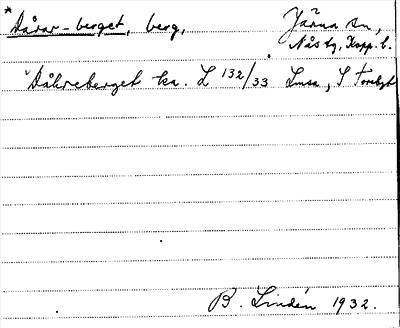 * Dårar-berget, berg, Järna sn,
Nås tg, Kopp. l.
Dåhreberget ka. L 132/33 Lusa, S
B. Lindén 1932.